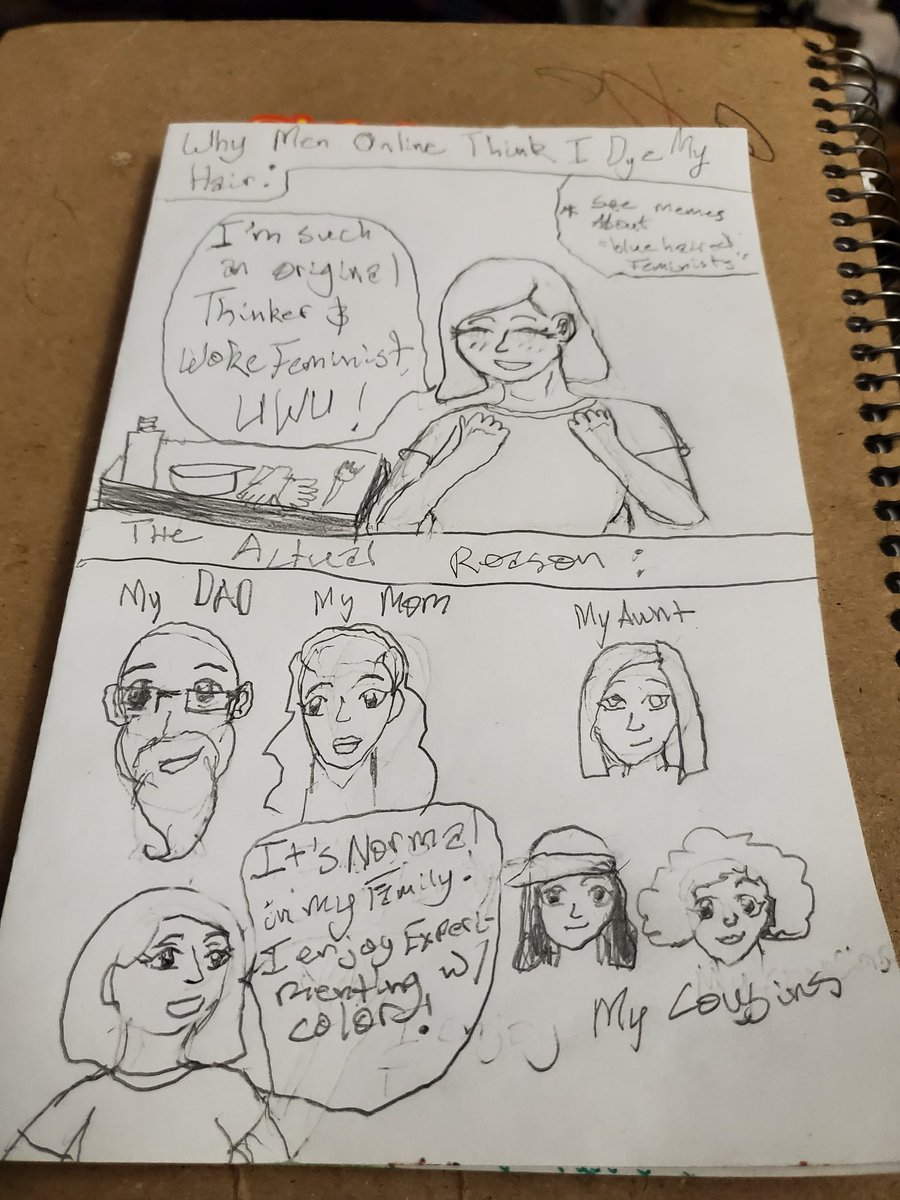 Why Men Online Think I Dye My
Hair:
* See memes
About
"blue haired
Feminists"
I'm such
an original
Thinker &
Woke Feminist,
UWU!
The Actual Reason:
My DAD
My Mom
My Aunt
It's Normal
in my Family.
I enjoy Experi-
menting w/
color!
My Cousins